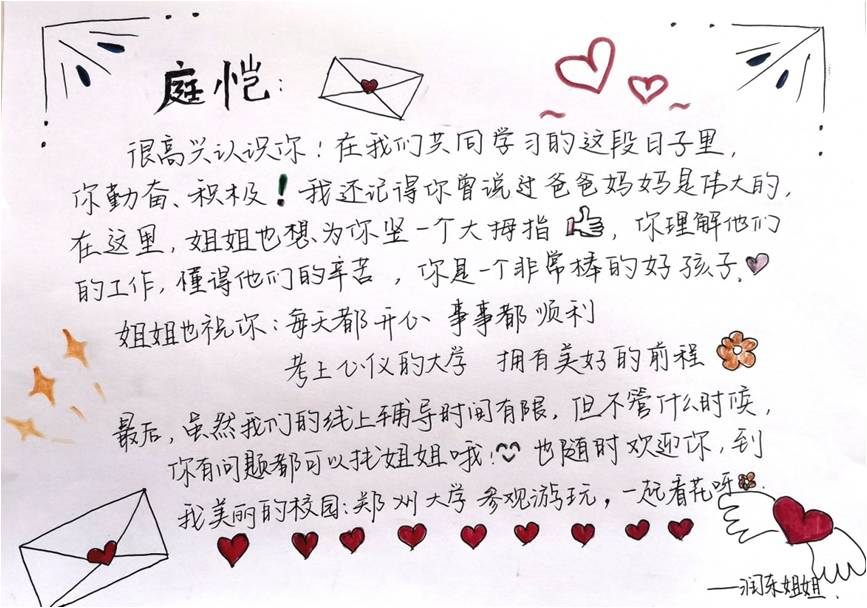 庭恺：
很高兴认识你！在我们共同学习的这段日子里，
你勤奋、积极！我还记得你曾说过爸爸妈妈是伟大的，
在这里，姐姐也想为你竖一个大拇指，你理解他们
的工作，懂得他们的辛苦，你是一个非常棒的好孩子.
姐姐也祝你：每天都开心 事事都顺利
考上心仪的大学 拥有美好的前程
最后，虽然我们的线上辅导时间有限，但不管什么时候，
你有问题都可以找姐姐哦！也随时欢迎你，到
我美丽的校园：郑州大学参观游玩，一起看花呀
——润东姐姐